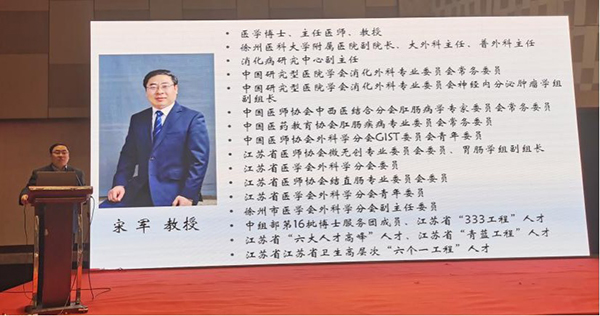 • 医学博士、主任医师、教授
• 徐州医科大学附属医院副院长、大外科主任、普外科主任
• 消化病研究中心副主任
• 中国研究型医院学会消化外科专业委员会常务委员
• 中国研究型医院学会消化外科专业委员会神经内分泌肿瘤学组
副组长
• 中国医师协会中西医结合分会肛肠病学专家委员会常务委员
• 中国医药教育协会肛肠疾病专业委员会常务委员
• 中国医师协会外科学分会GIST委员会青年委员
• 江苏省医师协会微无创专业委员会委员、胃肠学组副组长
• 江苏省医学会外科学分会委员
• 江苏省医师协会结直肠专业委员会委员
• 江苏省医学会外科学分会青年委员
• 徐州市医学会外科学分会副主任委员
• 中组部第16批博士服务团成员、江苏省“333工程”人才
• 江苏省“六大人才高峰”人才、江苏省“青蓝工程”人才
• 江苏省江苏省卫生高层次“六个一工程”人才
宋军 教授